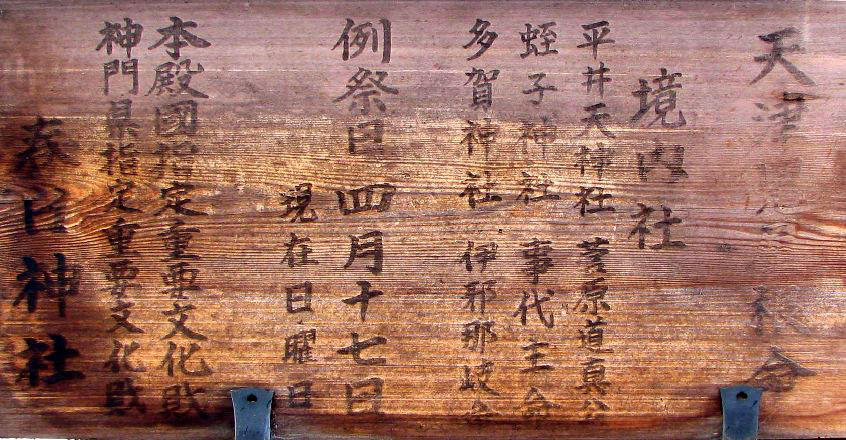 天津
境内社
平井天神社 菅原道真公
蛭子神社 事代主命
多賀神社 伊邪那岐命
例祭日 四月十七日
現在日曜日
本殿國指定重要文化財
神門県指定重要文化財
春日神社